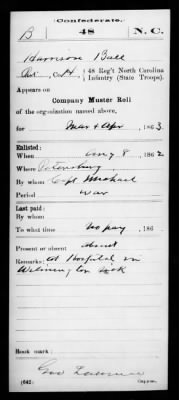 Confederate.
B 48 N.C.
Harrison Ball
Co. H, 48 Reg't North Carolina
Infantry (State Troops).
Appears on
Company Muster Roll
of the organization named above,
for Mar & Apr, 1863.
Enlisted:
When Aug 8, 1862
Where Petersburg
By whom Capt Michael
Period war
Last paid:
By whom
To what time no pay, 186
Present or absent absent
Remarks: At Hospital in
Wilmington sick
Book mark:
(642) Copyist.